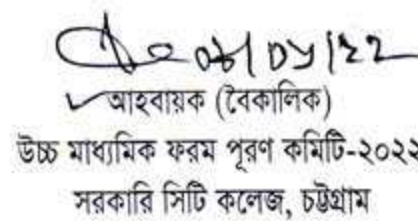 আহবায়ক (বৈকালিক)
উচ্চ মাধ্যমিক ফরম পূরণ কমিটি-২০২২
সরকারি সিটি কলেজ, চট্টগ্রাম